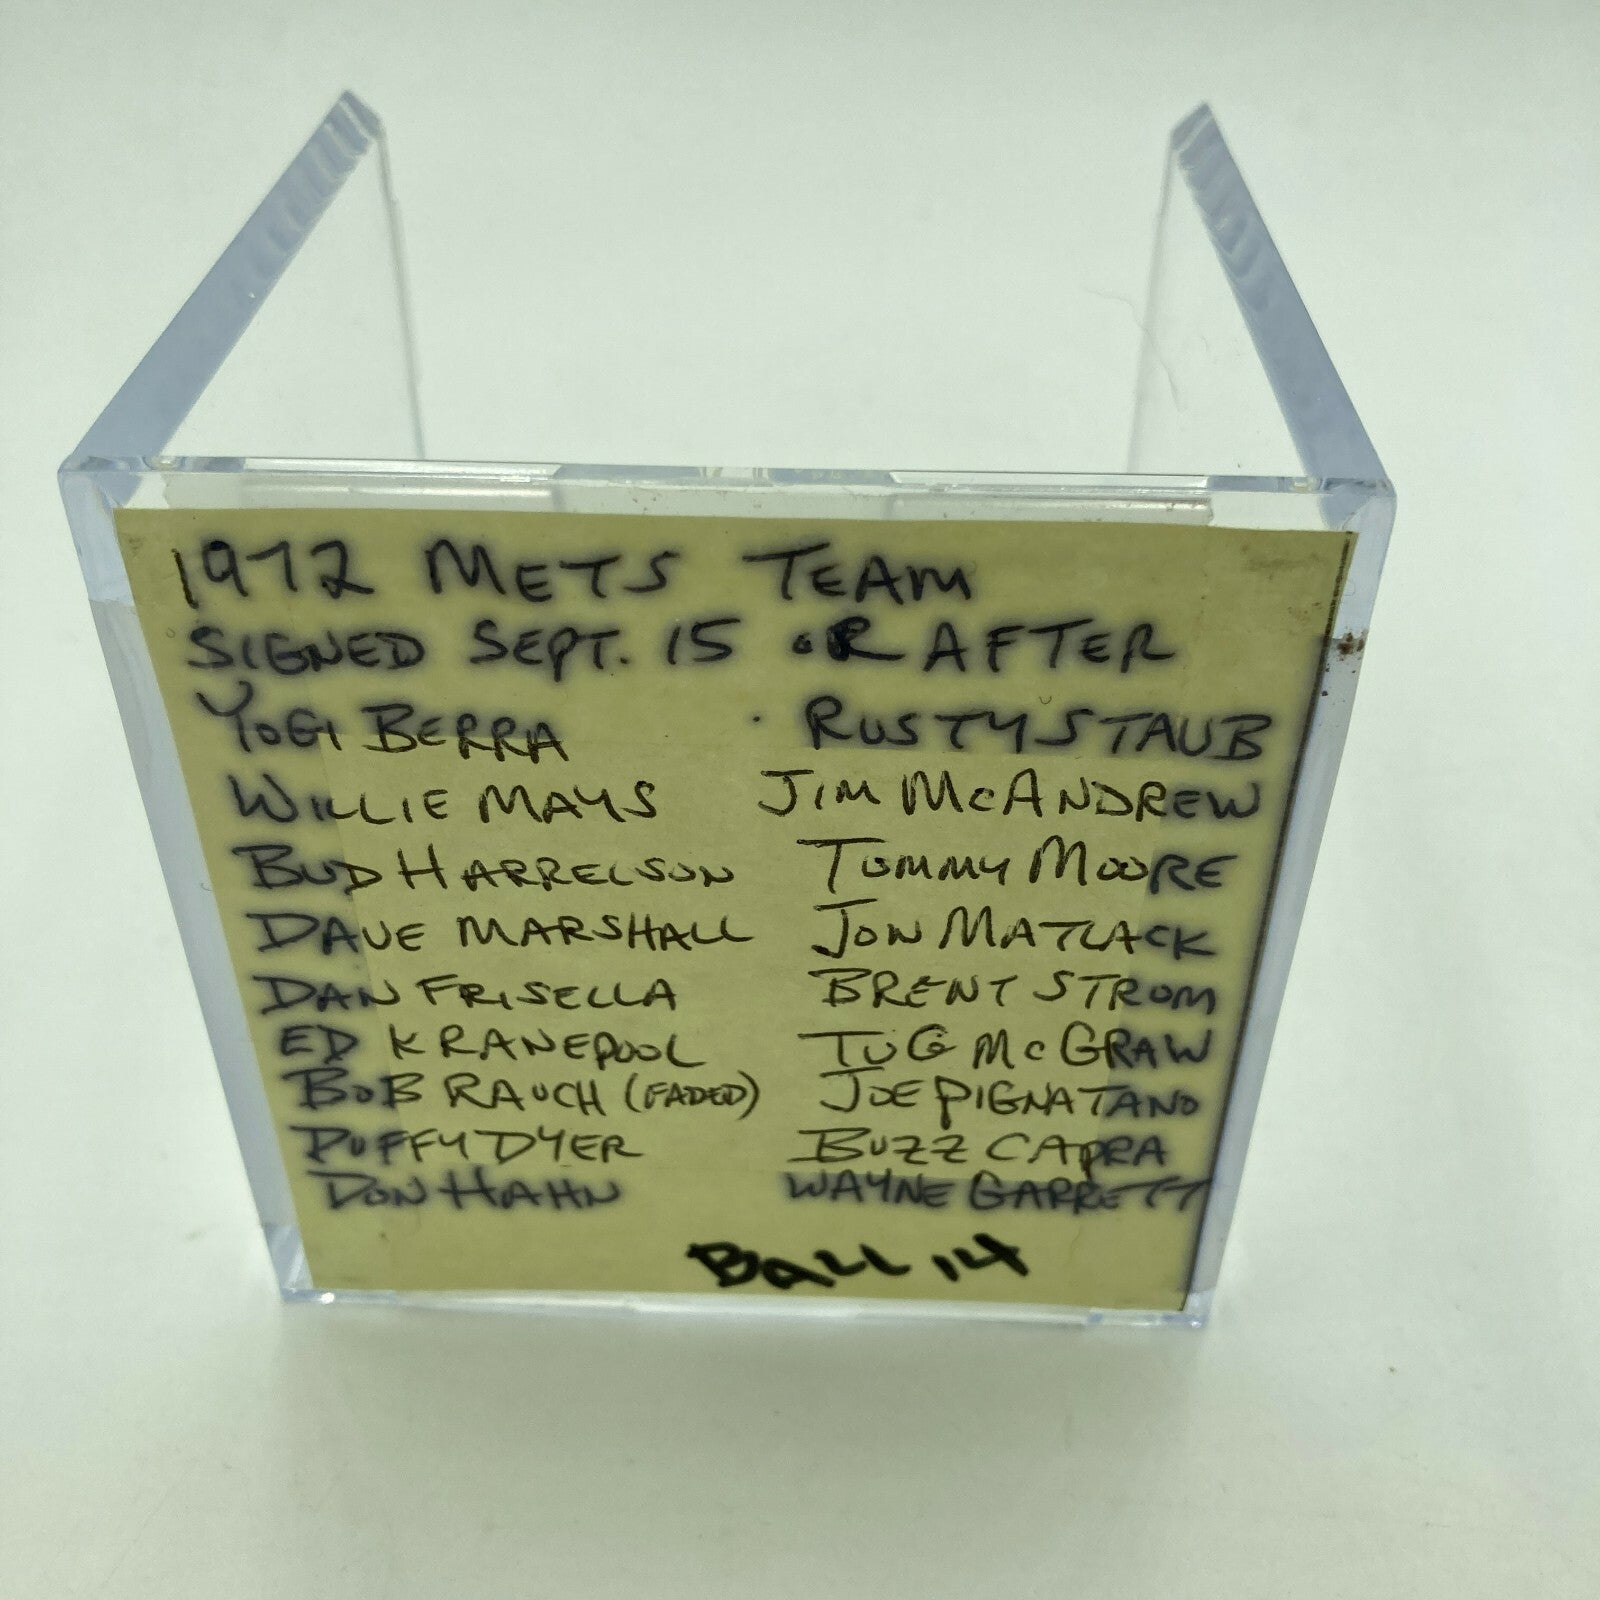 1972 METS TEAM
SIGNED SEPT. 15 OR AFTER
YOGI BERRA RUSTY STAUB
WILLIE MAYS JIM McANDREW
BUD HARRELSON TOMMY MOORE
DAVE MARSHALL JON MATLACK
DAN FRISELLA BRENT STROM
ED KRANEPOOL TUG McGRAW
BOB RAUCH (FADED) JOE PIGNATANO
DUFFY DYER BUZZ CAPRA
DON HAHN WAYNE GARRETT
BALL 14